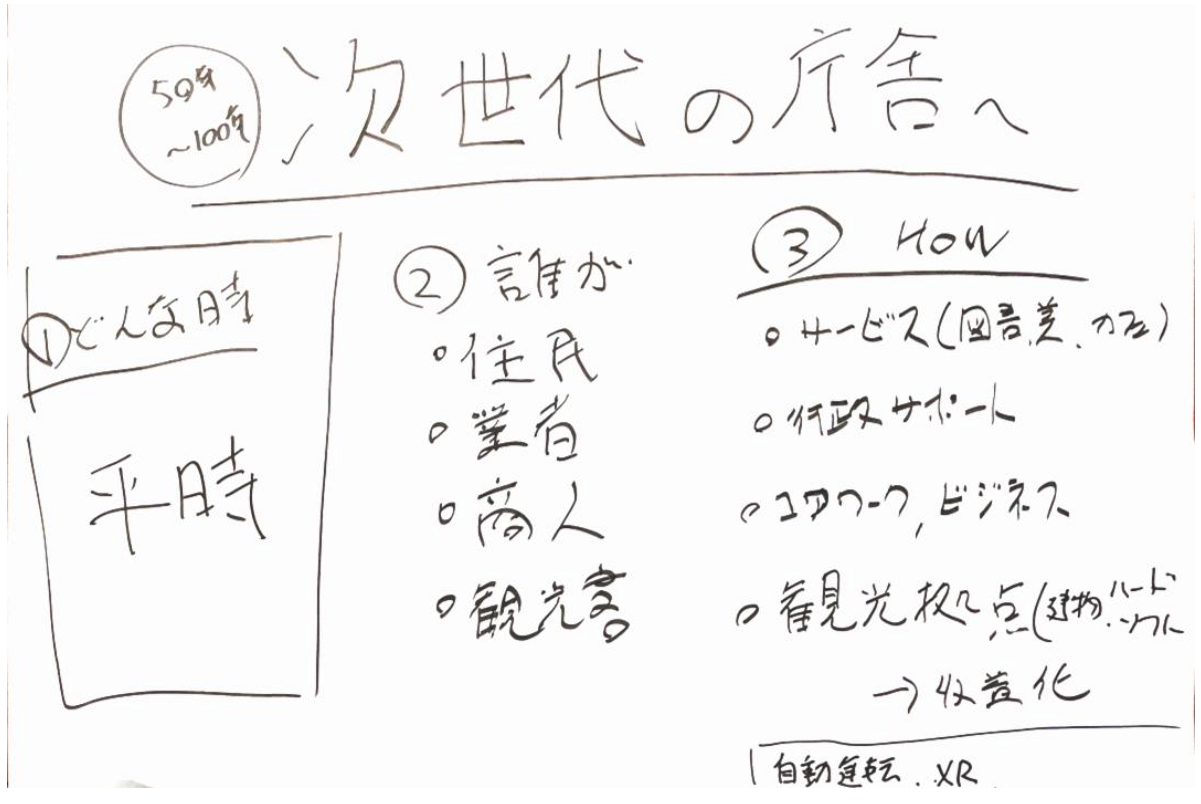 50年
~100年
次世代の庁舎へ
①どんな時
平時
②誰が
○住民
○業者
○商人
○観光客
③ HOW
○サービス(図書、美、カフェ)
○行政サポート
○コアワーク,ビジネス
○観光拠点(建物.ハード
ソフト
→収益化
自動運転.XR